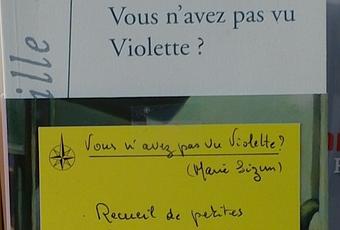 Vous n'avez pas vu
Violette ?
ille
Vous n'avez pas vu Violette ?
(Marie Sizun)
. Recueil de petites